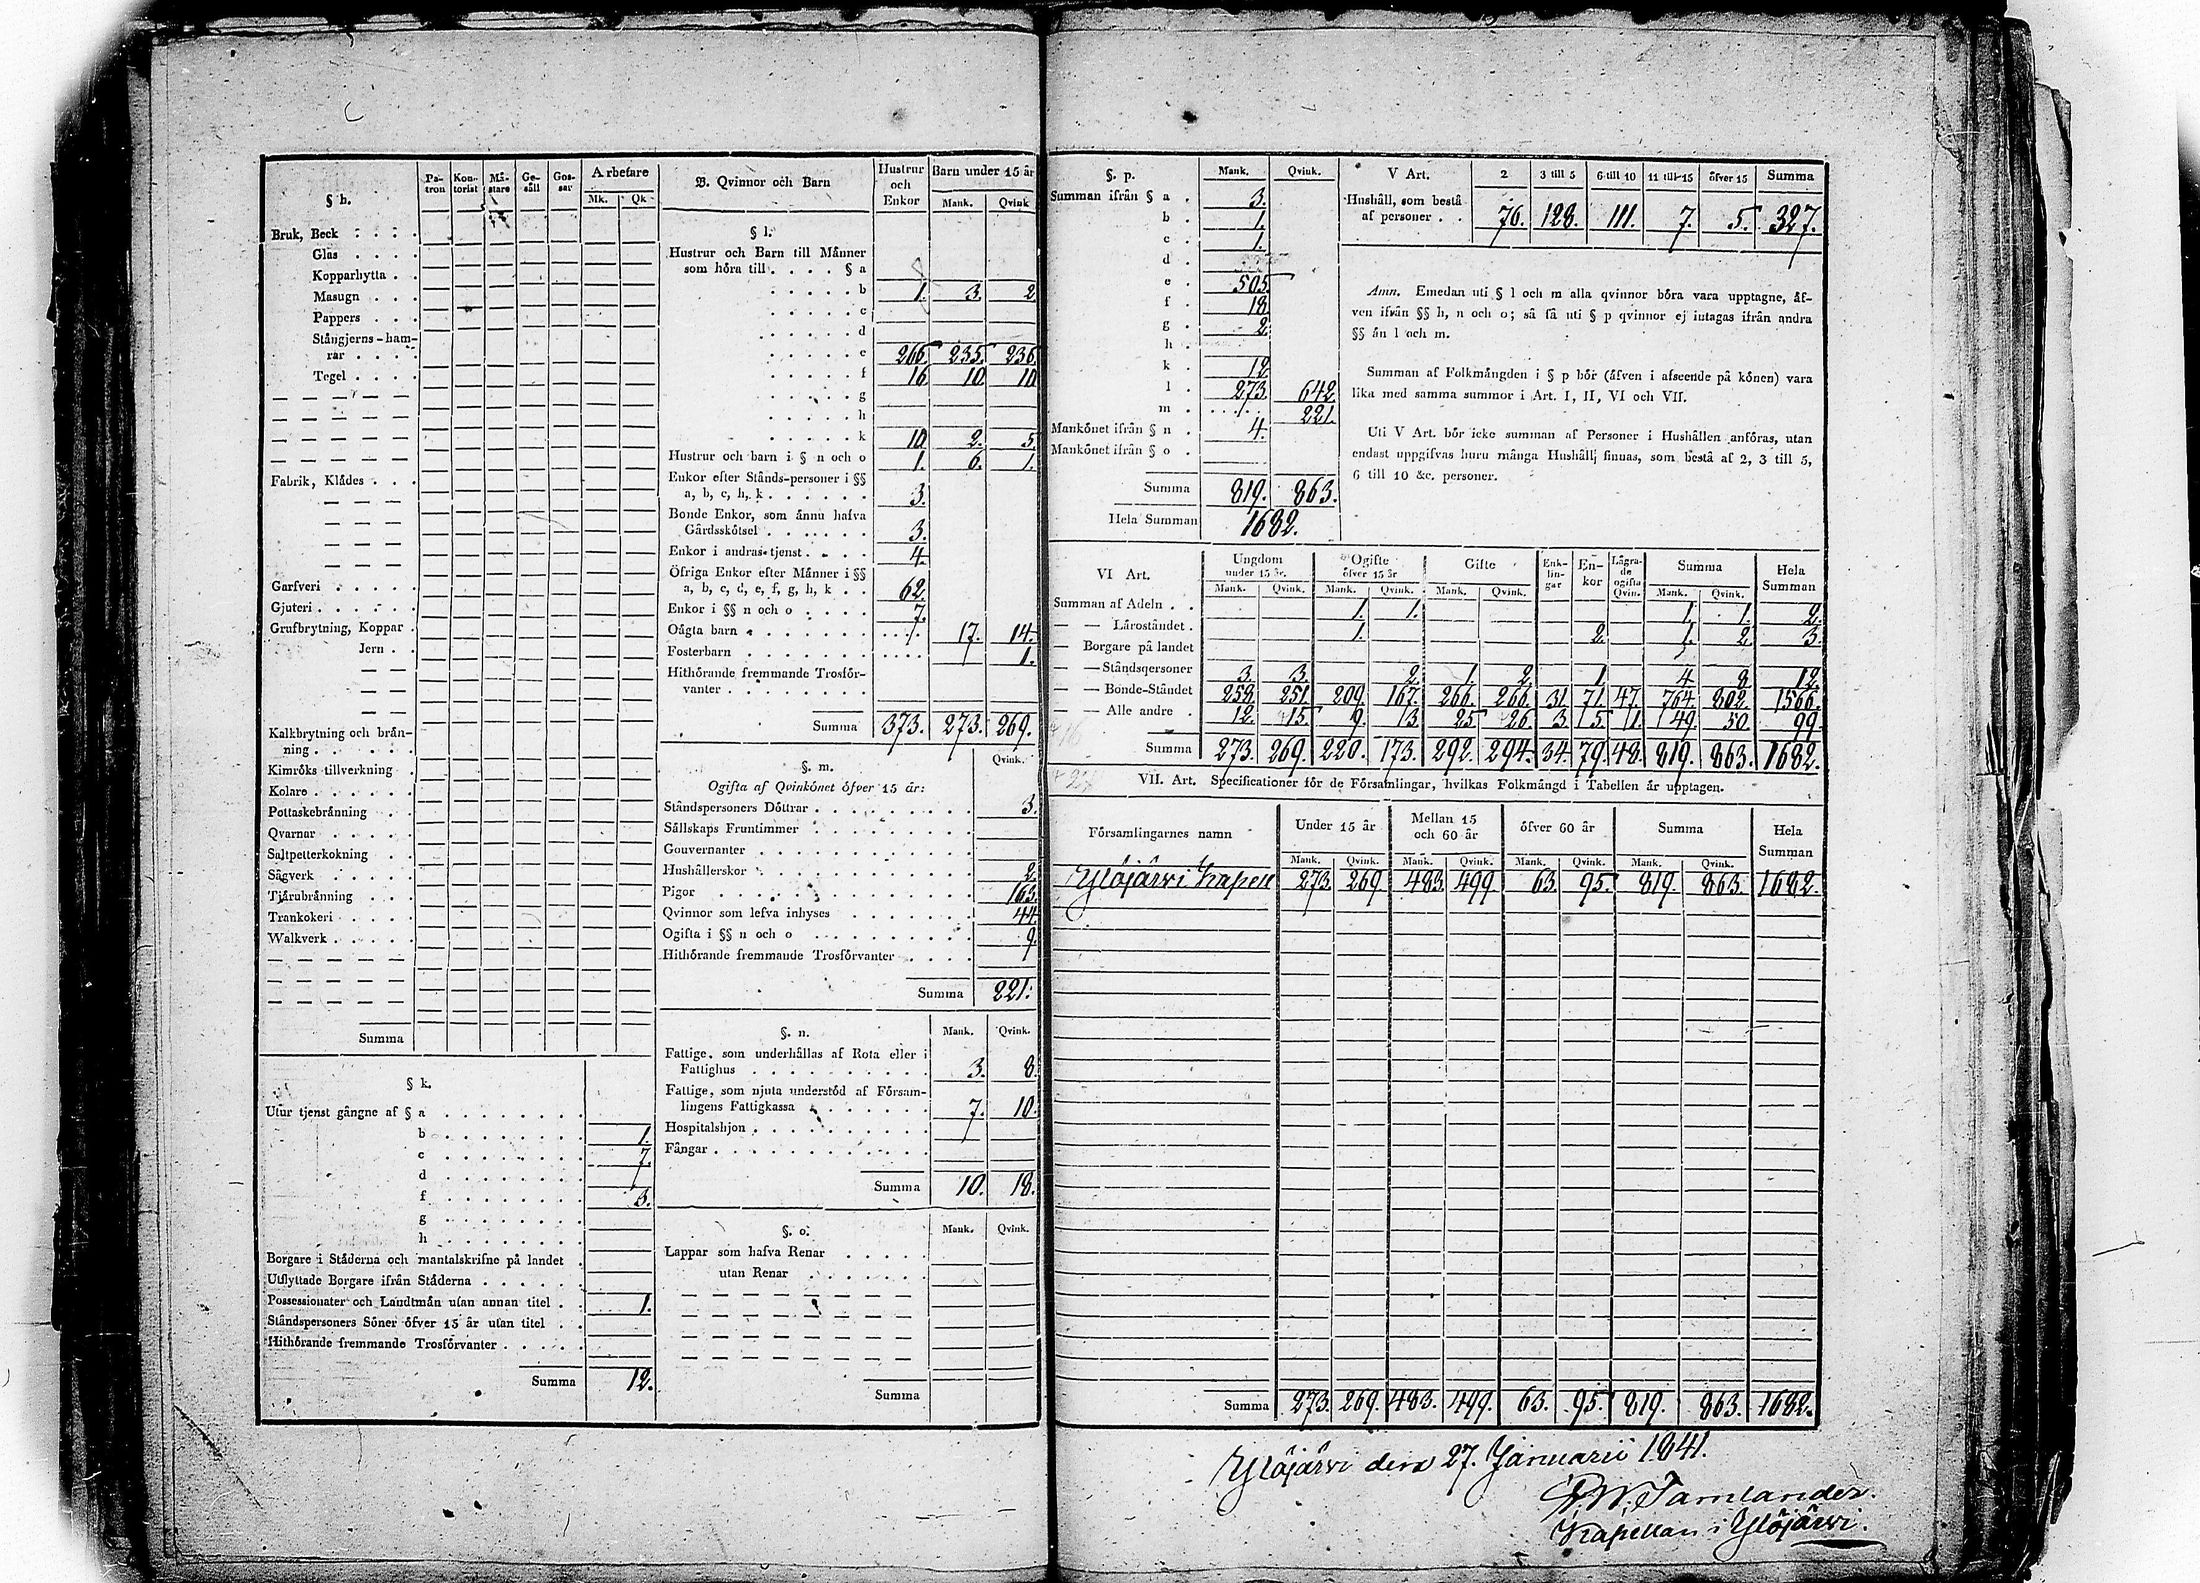 § h.
Patron Kontorist Mästare Gesäll Gossar Arbetare
Mk. Qk
Bruk, Beck
Glas
Kopparhytta
Masugn
Pappers
Stångjerns-hamrar
Tegel
Fabrik, Klädes
Garfveri
Gjuteri
Grufbrytning, Koppar
Jern
Kalkbrytning och bränning
Kimröks tillverkning
Kolare
Pottaskebränning
Qvarnar
Saltpetterkokning
Sågverk
Tjärubränning
Trankokeri
Walkverk
Summa
§ k.
Utur tjenst gångne af § a
b 1.
c 7.
d
f 3.
g
h
Borgare i Städerna och mantalskrifne på landet
Utflyttade Borgare ifrån Städerna
Possessionater och Landtmän utan annan titel 1.
Ståndspersoners Söner öfver 15 år utan titel
Hithörande fremmande Trosförvanter
Summa 12.
B. Qvinnor och Barn
Hustrur och Enkor Barn under 15 år
Mank. Qvink
§ l.
Hustrur och Barn till Männer
som höra till § a
b 1. 3. 2
c
d
e 266. 235. 236.
f 16 10 10
g
h
k 10 2. 5.
Hustrur och barn i § n och o 1. 6. 1.
Enkor efter Stånds-personer i §§
a, b, c, h, k 3.
Bonde Enkor, som ännu hafva
Gårdsskötsel 3.
Enkor i andras tjenst 4.
Öfriga Enkor efter Männer i §§
a, b, c, d, e, f, g, h, k 62.
Enkor i §§ n och o 7.
Oägta barn 17. 14.
Fosterbarn 1.
Hithörande fremmande Trosförvanter
Summa 373. 273. 269.
§. m.
Qvink.
Ogifta af Qvinkönet öfver 15 år:
Ståndspersoners Döttrar 3.
Sällskaps Fruntimmer
Gouvernanter
Hushållerskor 2.
Pigor 163.
Qvinnor som lefva inhyses 44.
Ogifta i §§ n och o 9.
Hithörande fremmande Trosförvanter
Summa 221.
§. n.
Mank. Qvink.
Fattige, som underhållas af Rota eller i
Fattighus 3. 8.
Fattige, som njuta understöd af Församlingens Fattigkassa 7. 10.
Hospitalshjon
Fångar
Summa 10. 18.
§. o.
Mank. Qvink.
Lappar som hafva Renar
utan Renar
Summa
§. p.
Mank. Qvink.
Summan ifrån § a 3.
b 1.
c 1.
d
e 505
f 18
g 2.
h
k 12
l 273. 642.
m 221.
Mankönet ifrån § n 4.
Mankönet ifrån § o
Summa 819. 863.
Hela Summan 1682.
V Art. 2 3 till 5 6 till 10 11 till 15 öfver 15 Summa
Hushåll, som bestå
af personer 76. 128. 111. 7. 5. 327.
Anm. Emedan uti § l och m alla qvinnor böra vara upptagne, äfven ifrån §§ h, n och o; så få uti § p qvinnor ej intagas ifrån andra
§§ än l och m.
Summan af Folkmängden i § p bör (äfven i afseende på könen) vara
lika med samma summor i Art. I, II, VI och VII.
Uti V Art. bör icke summan af Personer i Hushållen anföras, utan
endast uppgifvas huru många Hushåll finnas, som bestå af 2, 3 till 5,
6 till 10 &c. personer.
VI Art.
Ungdom under 15 år. Ogifte öfver 15 år Gifte Enklingar Enkor Lägrade ogifta Qvin. Summa Hela Summan
Mank. Qvink. Mank. Qvink. Mank. Qvink. Mank. Qvink.
Summan af Adeln 1. 1. 1. 1. 2.
— — Läroståndet 1. 2. 1. 2. 3.
— Borgare på landet
— — Ståndspersoner 3. 3. 2. 1. 2. 1. 4 8 12.
— — Bonde-Ståndet 258. 251. 209. 167. 266. 266. 31. 71. 47. 764. 802. 1566.
— — Alle andre 12. 15. 9. 13 25 26. 3 5 1. 49 50. 99.
Summa 273. 269. 220. 173. 292. 294. 34. 79. 48. 819. 863. 1682.
VII. Art. Specificationer för de Församlingar, hvilkas Folkmängd i Tabellen är upptagen.
Församlingarnes namn Under 15 år Mellan 15 och 60 år öfver 60 år Summa Hela Summan
Mank. Qvink. Mank. Qvink. Mank. Qvink. Mank. Qvink.
Ylöjärwi Kapell 273. 269. 483. 499. 63. 95. 819. 863. 1682.
Summa 273. 269. 483. 499. 63. 95. 819. 863. 1682.
Ylöjärwi den 27. Januarii 1841.
Tamlander.
Kapellan i Ylöjärwi.